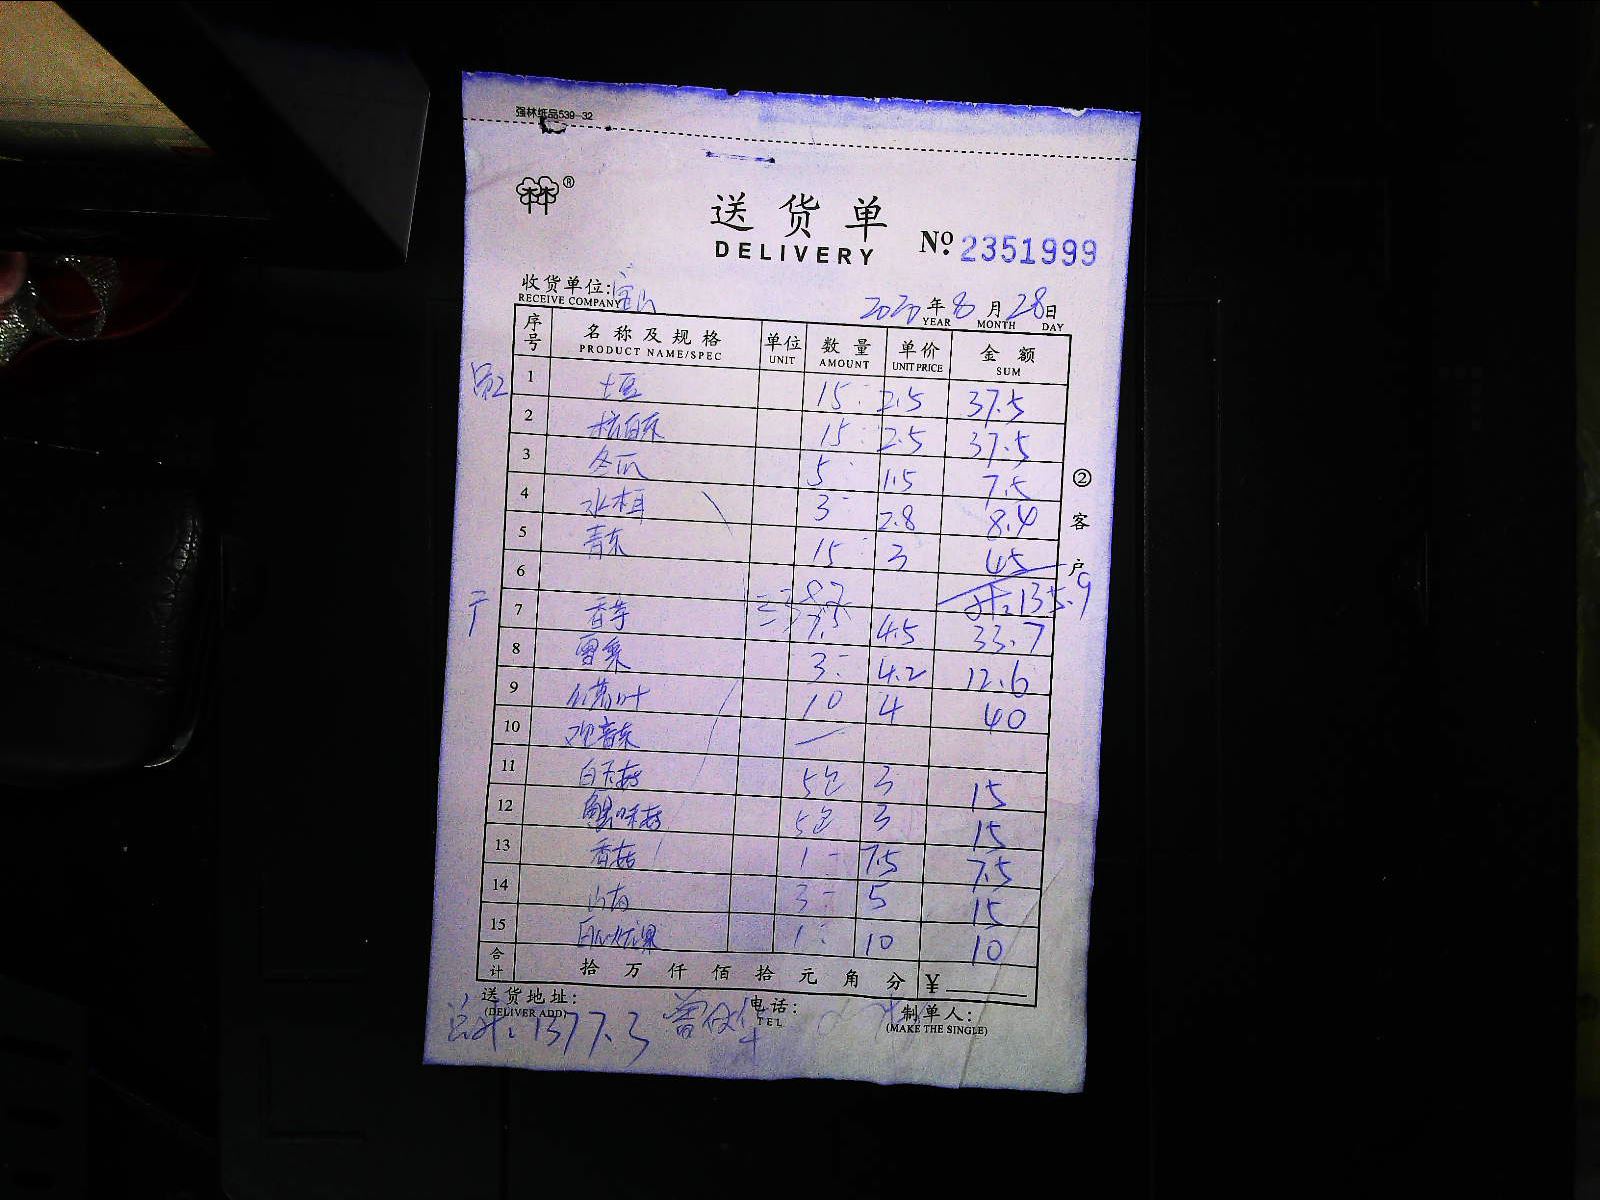 强林纸品539-32
林®
送货单
DELIVERY
No. 2351999
收货单位:
RECEIVE COMPANY
2020年8月28日
YEAR MONTH DAY
序号 名称及规格 单位 数量 单价 金额
PRODUCT NAME/SPEC UNIT AMOUNT UNIT PRICE SUM
1 土豆 15 2.5 37.5
2 15 2.5 37.5
3 冬瓜 5 1.5 7.5
4 水木耳 3 2.8 8.4
5 青东 15 3 45
6 135.9
7 香芋 7.5 4.5 33.7
8 3 4.2 12.6
9 10 4 40
10 观音
11 白玉菇 5包 3 15
12 蟹味菇 5包 3 15
13 香菇 1 7.5 7.5
14 山药 3 5 15
15 1 10 10
合计 拾万仟佰拾元角分 ¥
②客户
送货地址: 电话: 制单人:
(DELIVER ADD) TEL (MAKE THE SINGLE)
1377.3